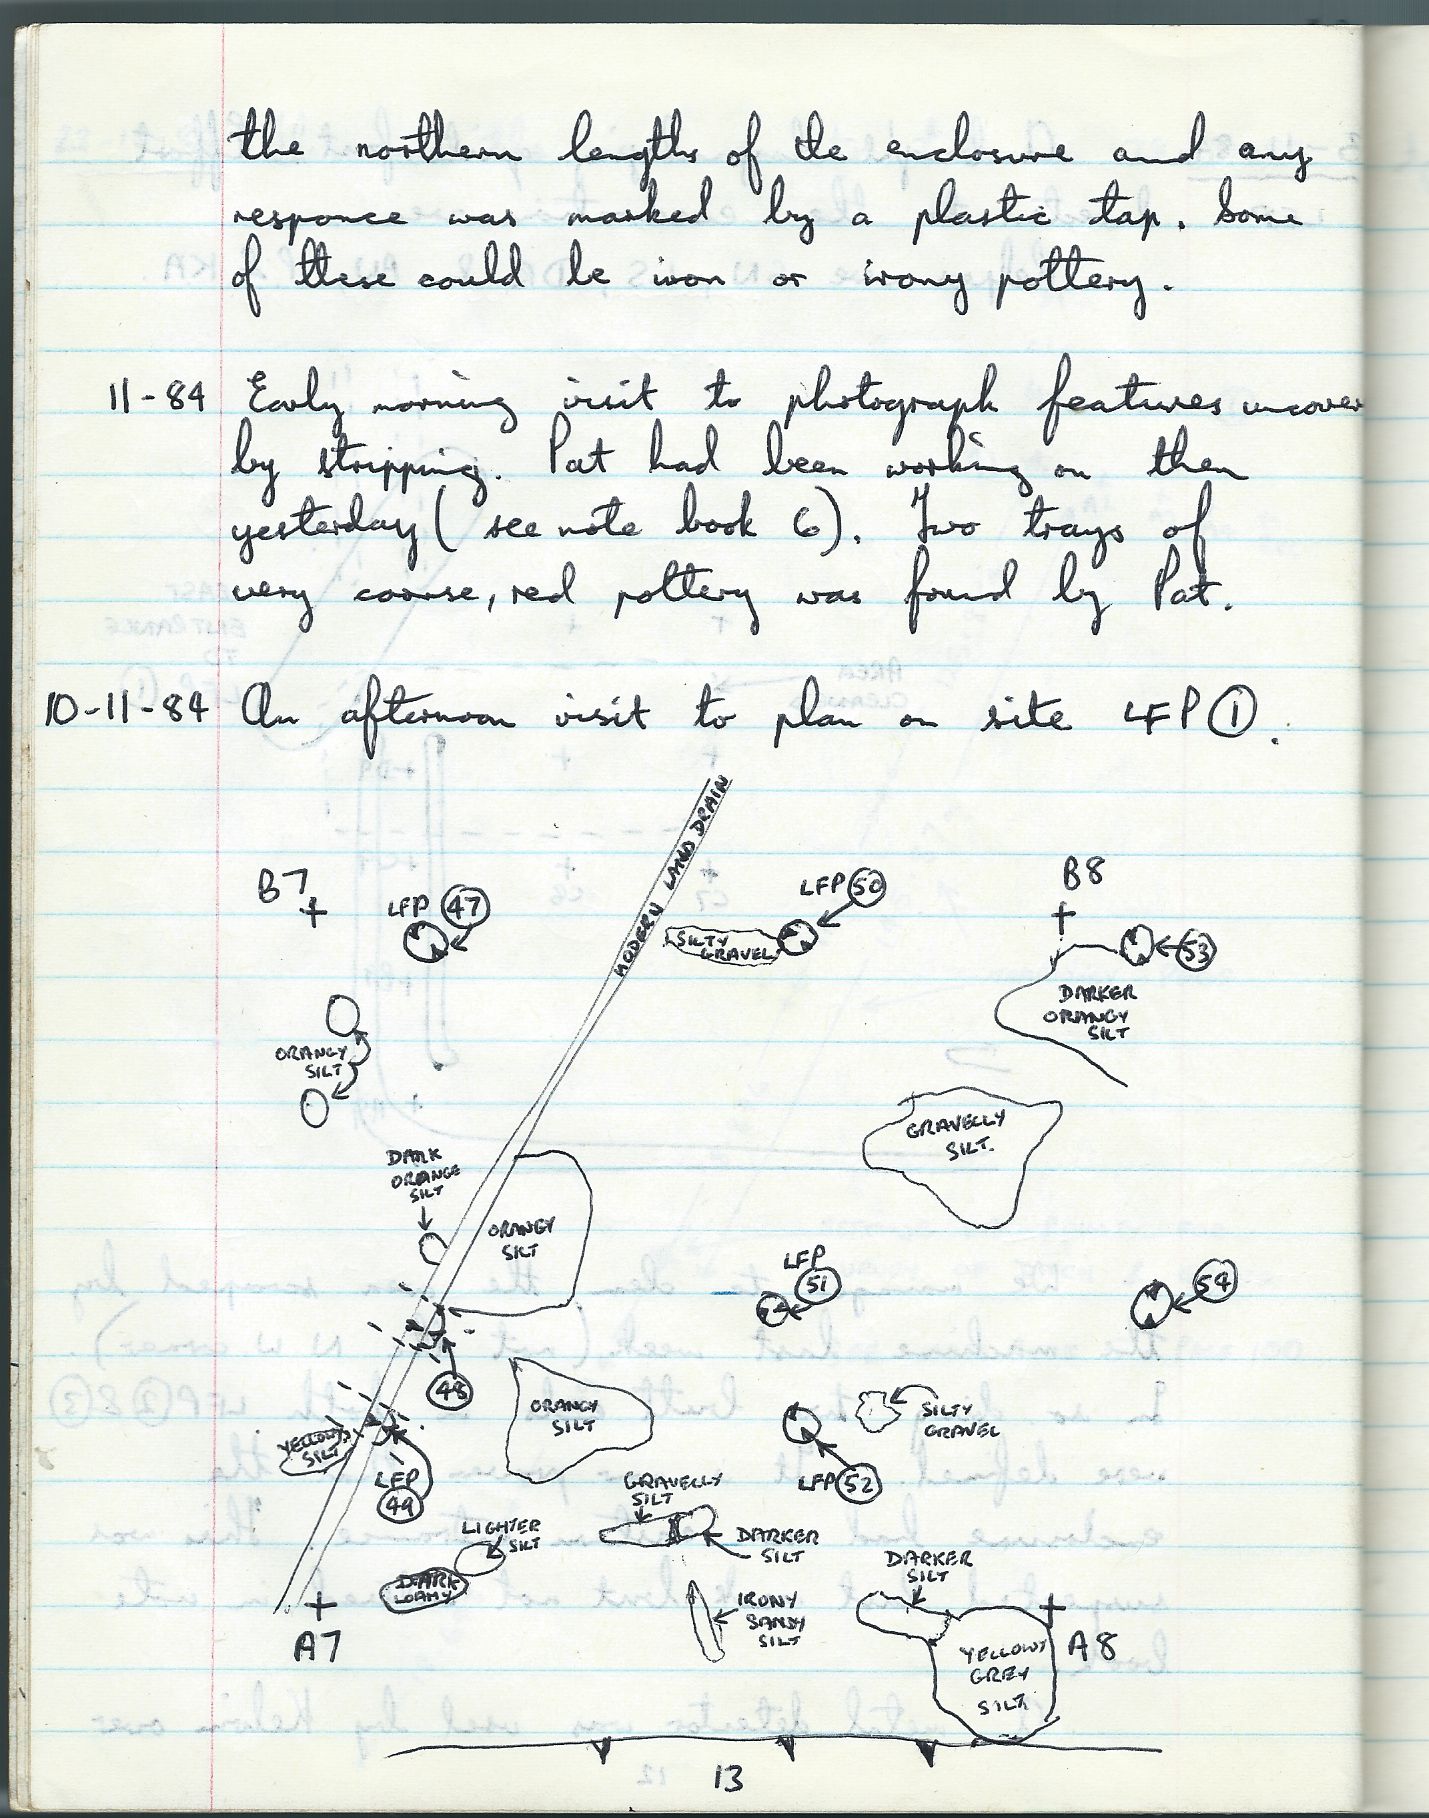 the northern lengths of the enclosure and any
responce was marked by a plastic tap. Some
of these could be iron or irony pottery.
11-84 Early morning visit to photograph features uncover
by stripping. Pat had been working on then
yesterday (see note book 6). Two trays of
very coarse, red pottery was found by Pat.
10-11-84 An afternoon visit to plan on site LFP 1.
MODERN LAND DRAIN
B7
LFP 47
LFP 50
B8
SILTY
GRAVEL
53
DARKER
ORANGY
SILT
ORANGY
SILT
GRAVELLY
SILT.
DARK
ORANGE
SILT
ORANGY
SILT
LFP
51
54
48
ORANGY
SILT
SILTY
GRAVEL
YELLOWY
SILT
LFP
49
LFP 52
GRAVELLY
SILT
LIGHTER
SILT
DARKER
SILT
DARK
LOAMY
DARKER
SILT
IRONY
SANDY
SILT
A7
A8
YELLOWY
GREY
SILT
13